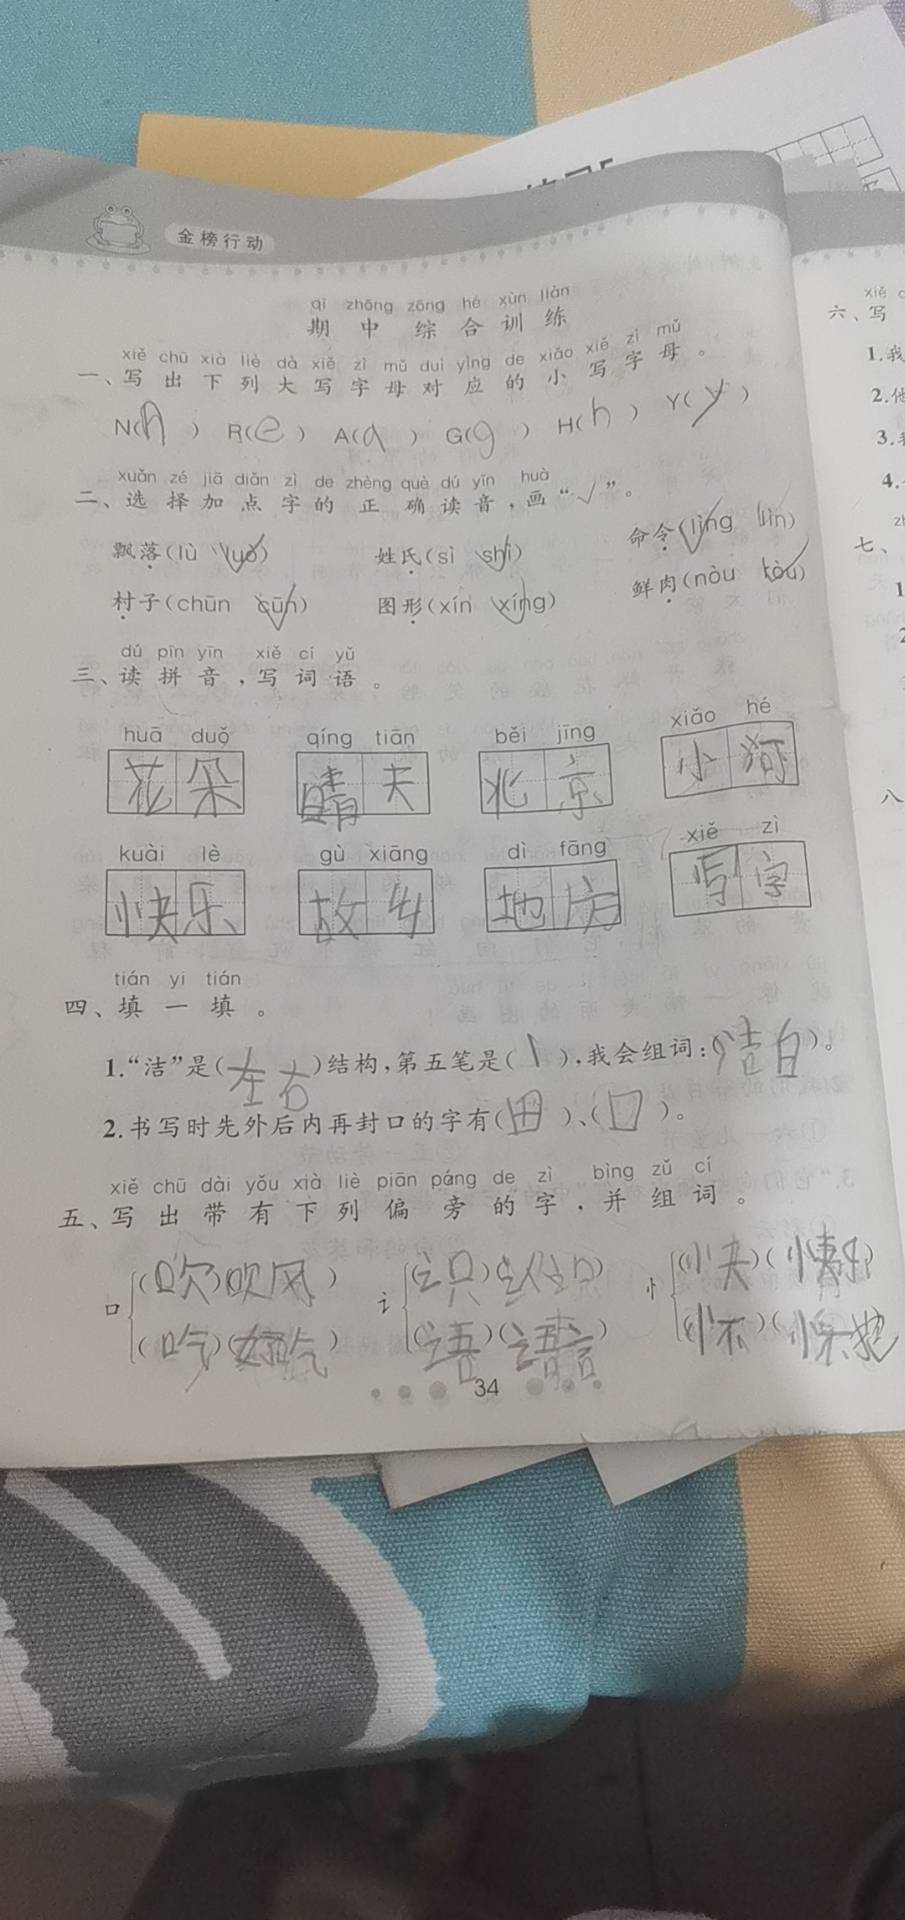 金榜行动
qī zhōng zōng hé xùn liàn
期中综合训练
xiě chū xià liè dà xiě zì mǔ duì yìng de xiǎo xiě zì mǔ
一、写出下列大写字母对应的小写字母。
N(n) R(e) A(a) G(g) H(h) Y(y)
xuǎn zé jiā diǎn zì de zhèng què dú yīn huà
二、选择加点字的正确读音,画“√”。
飘落(lù luò√) 姓氏(sì shì√) 命令(lìng√ lìn)
村子(chūn cūn√) 图形(xín xíng√) 鲜肉(nòu ròu√)
dú pīn yīn xiě cí yǔ
三、读拼音,写词语。
huā duǒ qíng tiān běi jīng xiǎo hé
花朵 晴天 北京 小河
kuài lè gù xiāng dì fāng xiě zì
快乐 故乡 地方 写字
tián yi tián
四、填一填。
1.“洁”是(左右)结构,第五笔是(丨),我会组词:(洁白)。
2.书写时先外后内再封口的字有(田)、(口)。
xiě chū dài yǒu xià liè piān páng de zì bìng zǔ cí
五、写出带有下列偏旁的字,并组词。
口 (吹)(吹风) 讠 (识)(认识) 忄 (快)(快乐)
(吃)(好吃) (语)(语言) (怀)
34
xiě
六、写
1.我
2.他
3.我
4.
七、
1
2
八